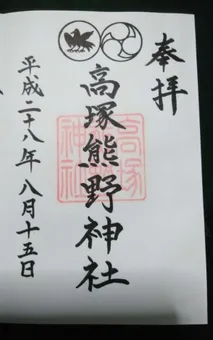 奉拝
高塚熊野神社
高塚
熊野
神社
平成二十八年八月十五日